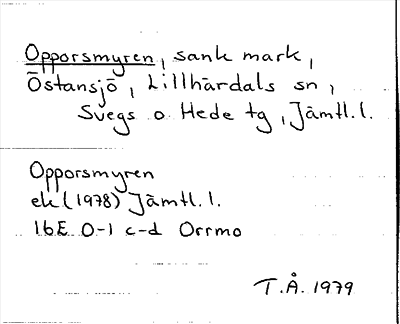 Opporsmyren, sank mark,
Östansjö, Lillhärdals sn,
Svegs o Hede tg, Jämtl. l.
Opporsmyren
ek (1978) Jämtl. l.
16E 0-1 c-d Orrmo
T.Å. 1979